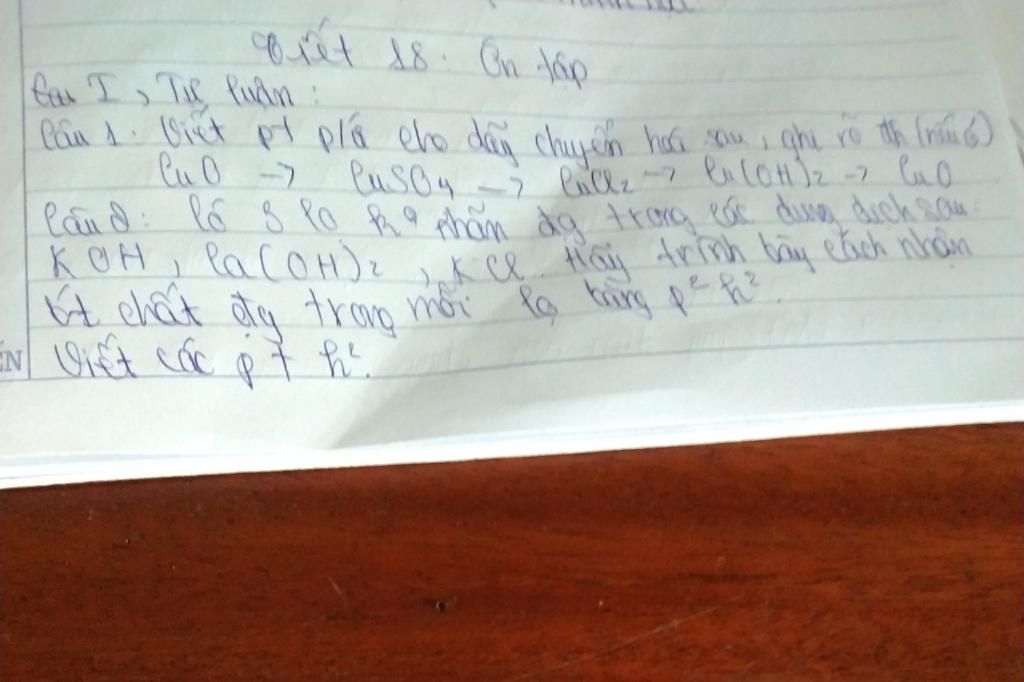 Tiết 18: Ôn tập
Câu I, Tự luận:
Câu 1: Viết pt p/ứ cho dãy chuyển hoá sau, ghi rõ đk (nếu có)
CuO → CuSO4 → CuCl2 → Cu(OH)2 → CuO
Câu 2: Có 3 lọ k° nhãn đg trong các dung dịch sau:
KOH, Ca(OH)2, KCl. Hãy trình bày cách nhận
bt chất đg trong mỗi lọ bằng p² h².
Viết các pt h².